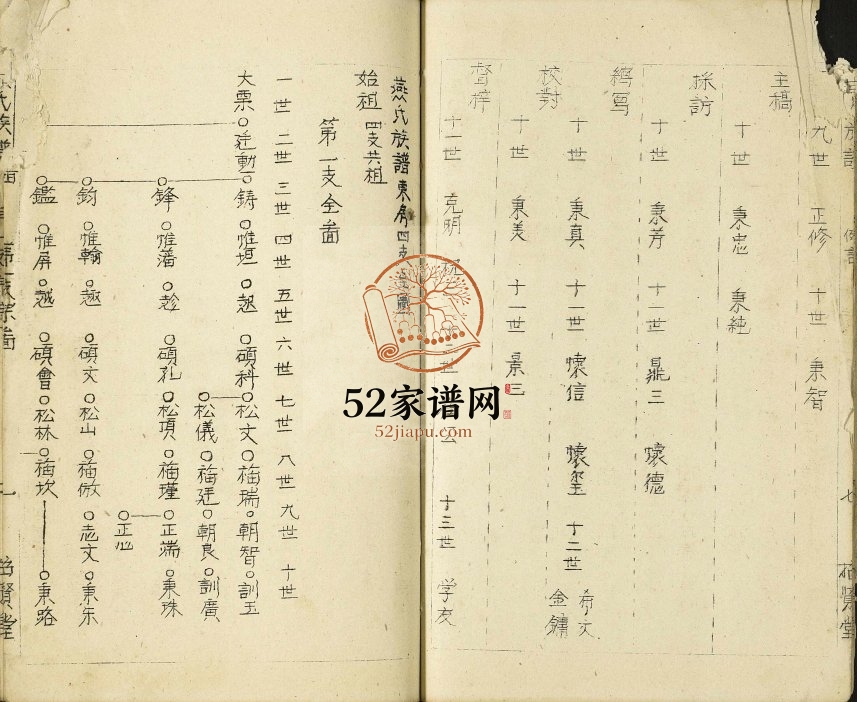 族譜
九世 正修 十世 秉智
主稿
十世 秉忠 秉純
採訪
十世 秉芳 十一世 鼎三 懷德
繕写
十世 秉真 十一世 懷信 懷玺 十二世 希文 金鏞
校對
十世 秉美 十一世 景三
督梓
十一世 克明 十三世 学友
燕氏族譜東房四支
始祖 四支共祖
第一支全啚
一世 二世 三世 四世 五世 六世 七世 八世 九世 十世
大栗 廷動 鋳 惟垣 起 碩科 松文 福瑞 朝智 訓玉
松儀 福廷 朝良 訓廣
鋒 惟藩 趁 碩礼 松項 福瑾 正端 秉珠
正心
鈞 惟翰 趣 碩文 松山 福倣 志文 秉乐
鑑 惟屏 越 碩會 松林 福坎 秉路
氏族譜
52家谱网
52jiapu.com